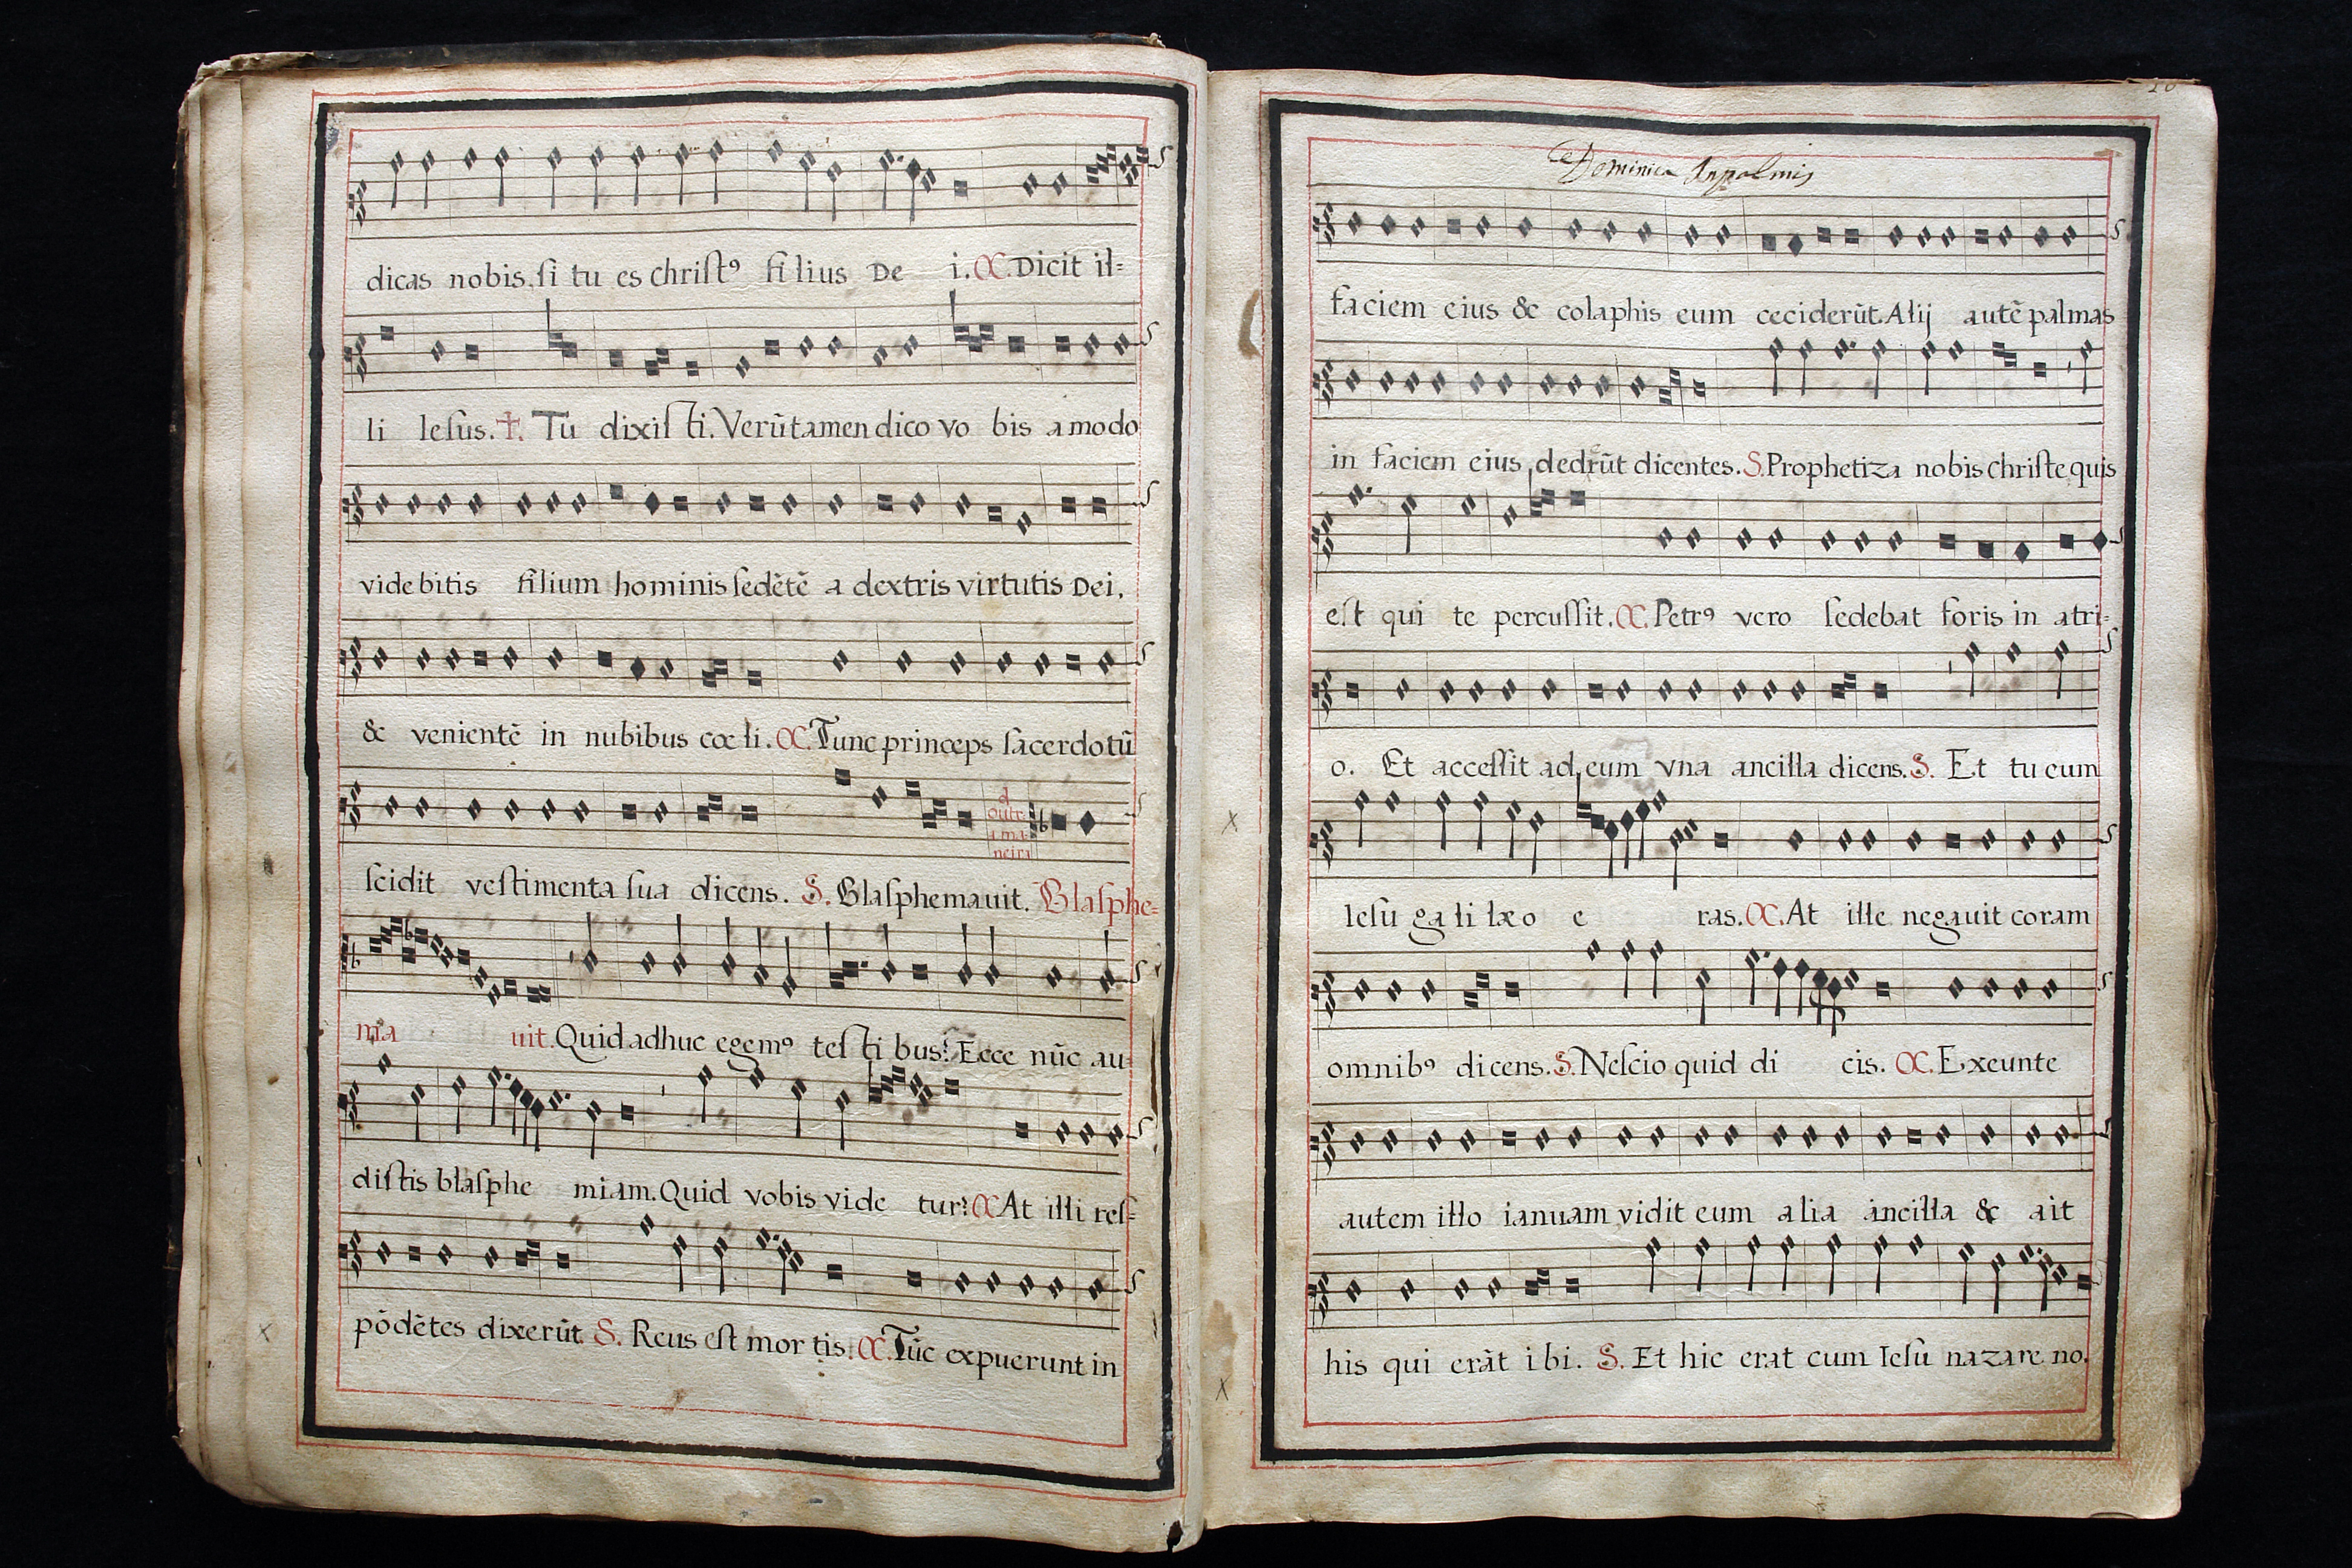 dicas nobis. ſi tu es chriſtꝰ filius De i. C. Dicit il=
li Ieſus. ✝. Tu dixiſti. Verūtamen dico vo bis amodo
videbitis filium hominis ſedētē a dextris virtutis Dei,
& venientē in nubibus cœli. C. Tunc princeps ſacerdotū
d outra maneira
ſcidit veſtimenta ſua dicens. S. Blaſphemauit. Blaſphe=
ma uit. Quid adhuc egemꝰ teſtibus? Ecce nūc au=
diſtis blaſphe miam. Quid vobis vide tur? C At illi reſ=
pōdētes dixerūt. S. Reus eſt mortis. C. Tūc expuerunt in
Dominica Inpalmis
faciem eius & colaphis eum ceciderūt. Alij autē palmas
in faciem eius dedrūt dicentes. S. Prophetiza nobis chriſte quis
eſt qui te percuſſit. C. Petrꝰ vero ſedebat foris in atri=
o. Et acceſſit ad eum vna ancilla dicens. S. Et tu cum
Ieſu galilæo e ras. C. At ille negauit coram
omnibꝰ dicens. S. Neſcio quid di cis. C. Exeunte
autem illo ianuam vidit eum alia ancilla & ait
his qui erāt ibi. S. Et hic erat cum Ieſu nazareno.